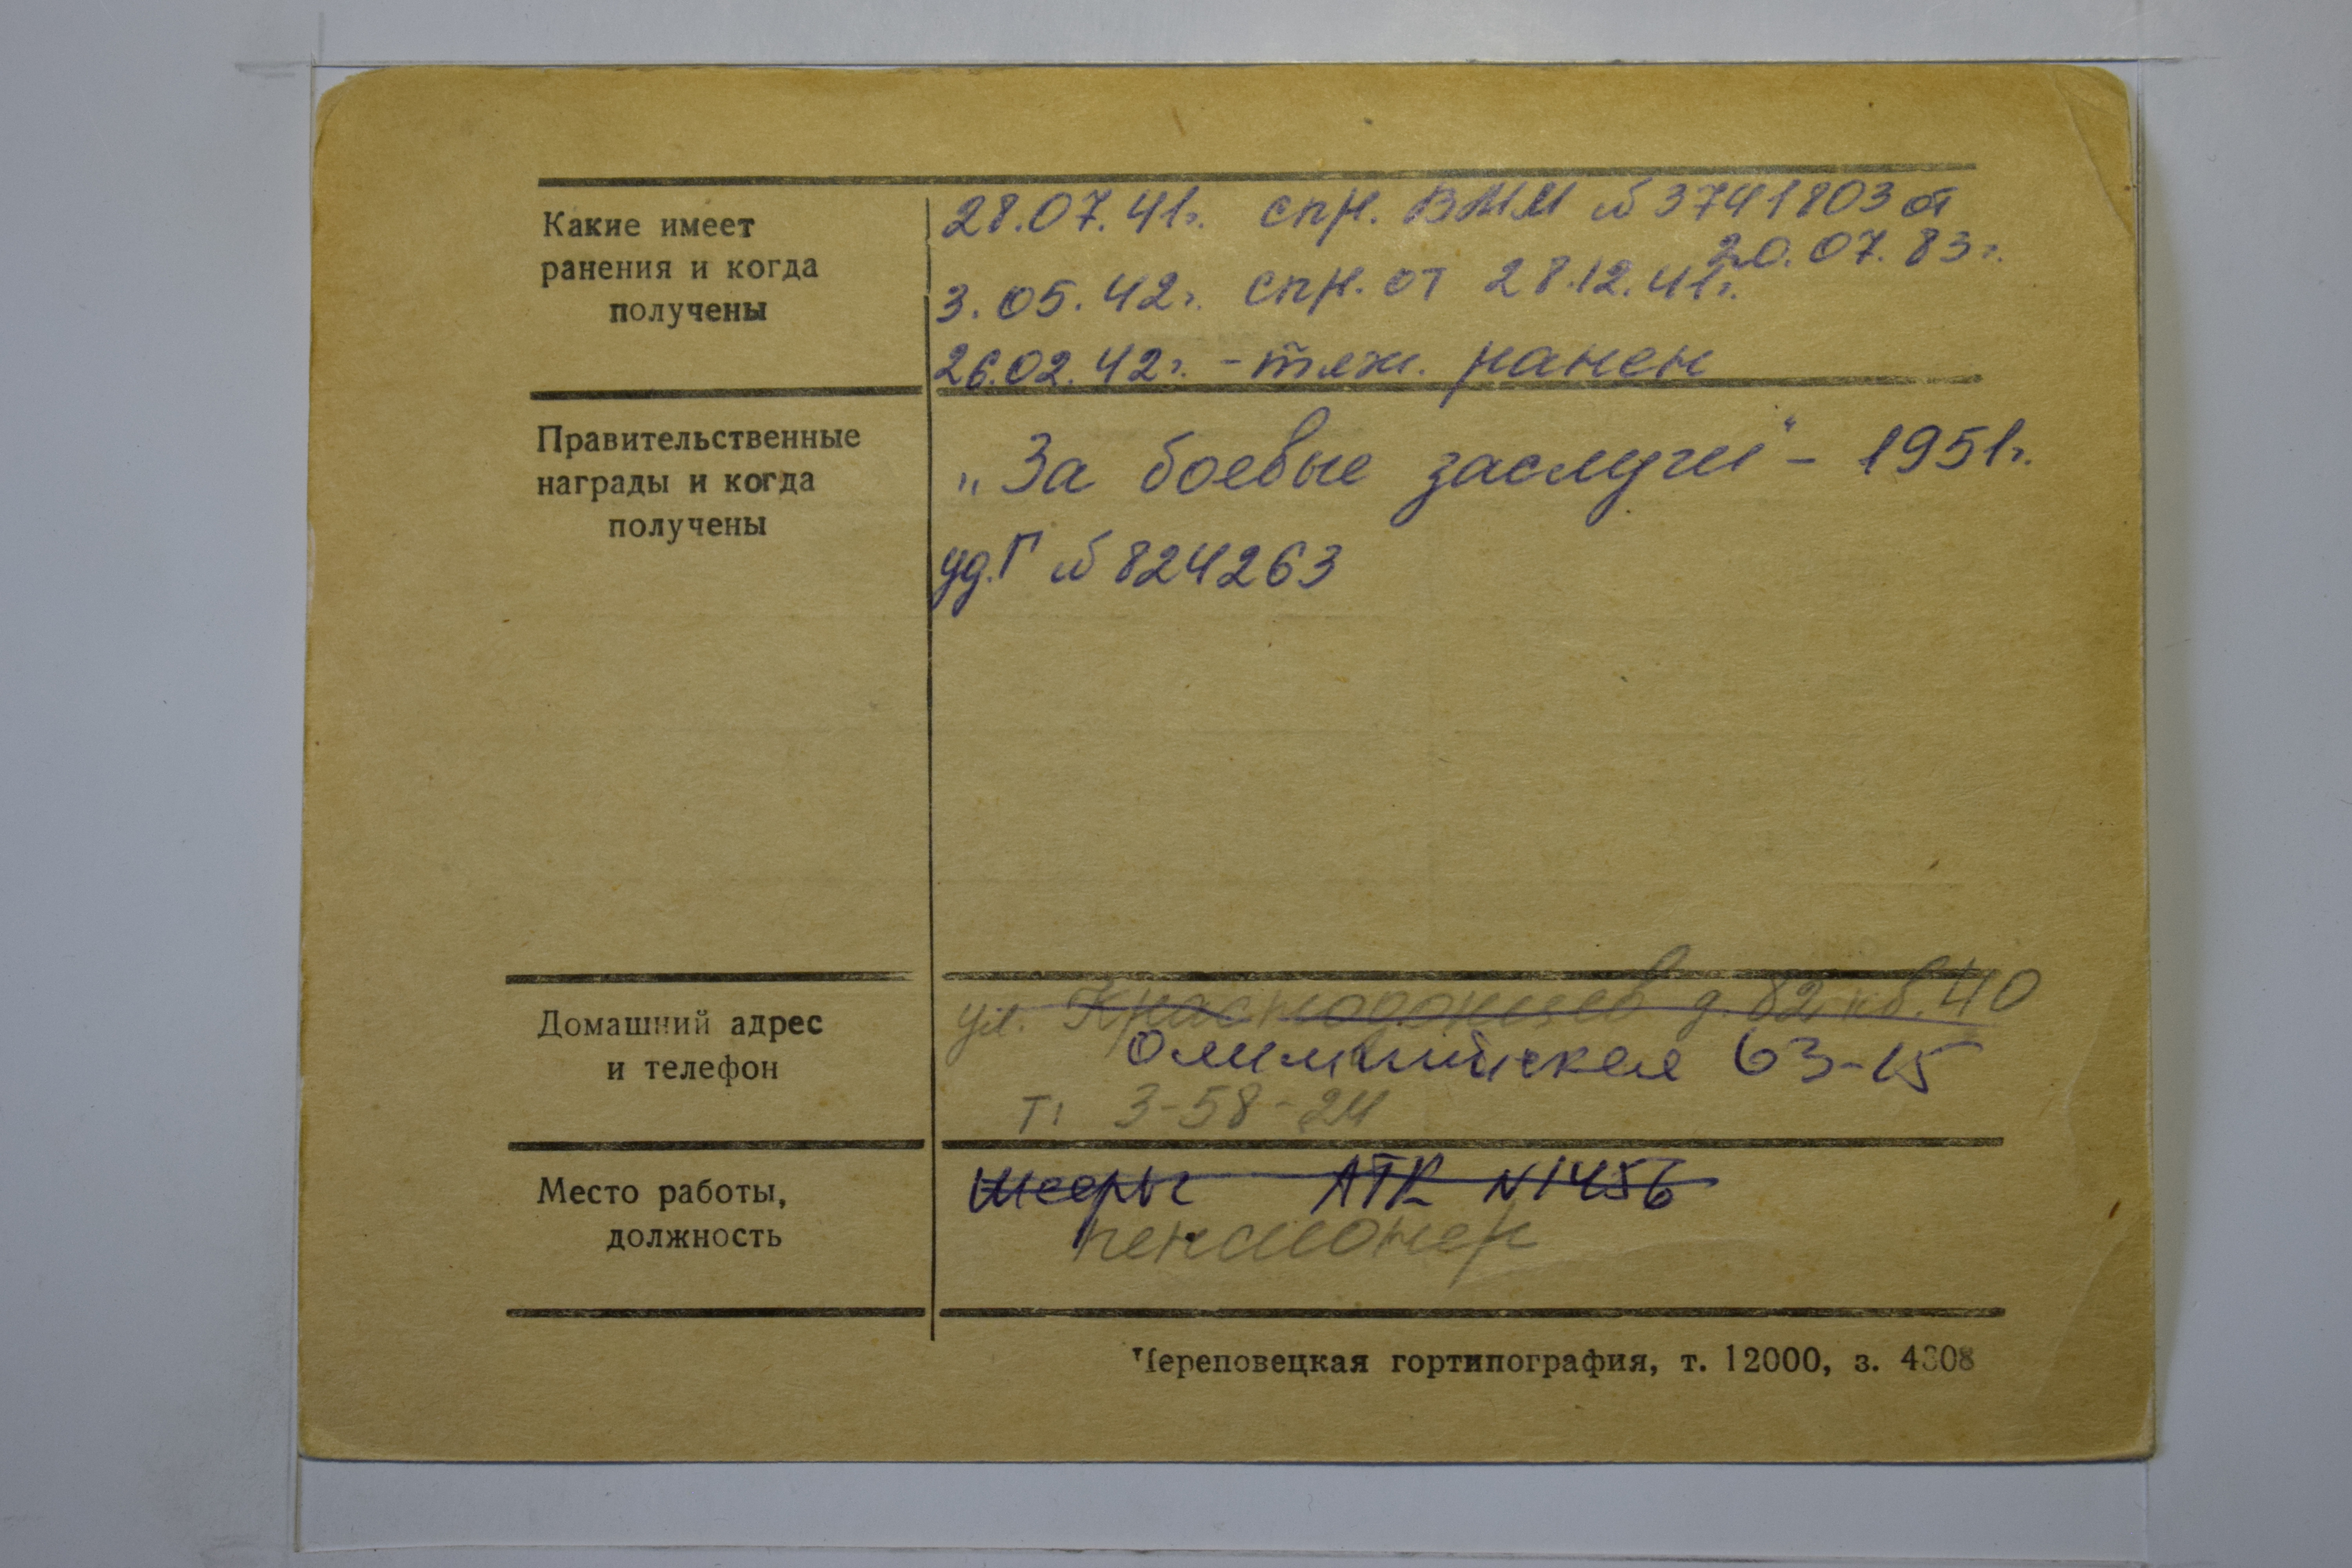 Какие имеет
ранения и когда
получены
28.07.41г. спр. ВММ №3741803 от
20.07.83г.
3.05.42г. спр. от 28.12.41г.
26.02.42г. - тяж. ранен
Правительственные
награды и когда
получены
„За боевые заслуги" - 1951г.
уд. Г №824263
Домашний адрес
и телефон
ул. Краснодонцев д. 82 кв. 40
Олимпийская 63-15
т: 3-58-24
Место работы,
должность
АТК N1456
пенсионер
Череповецкая гортипография, т. 12000, з. 4308